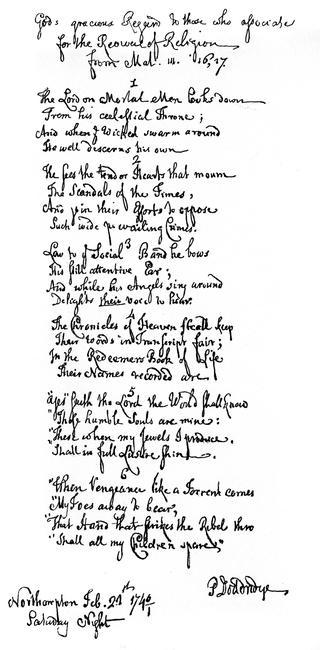 God's gracious Regard to those who associate
for the Revival of Religion
from Mal. iii. 16, 17.
1
The Lord on Mortal Men looks down
From his celestial Throne;
And when ye Wicked swarm around
He well discerns his own
2
He sees the tender Hearts that mourn
The Scandals of the Times,
And join their Efforts to oppose
Such wide prevailing Crimes.
3
Low to ye Social Band he bows
His still attentive Ear;
And while his Angels sing around
Delights their voice to hear.
4
The Chronicles of Heaven shall keep
Their Words in Transcript fair;
In the Redeemers Book of Life
Their Names recorded are
5
"Yes saith the Lord the World shall know
"These humble Souls are mine:
"These when my Jewels I produce.
"Shall in full Lustre shine
6
"When Vengeance like a Torrent comes
"My Foes away to bear,
"That Hand that strikes the Rebel thro
"Shall all my Children spare,"
P Doddridge
Northampton Feb. 21st 1740/1
Saturday Night